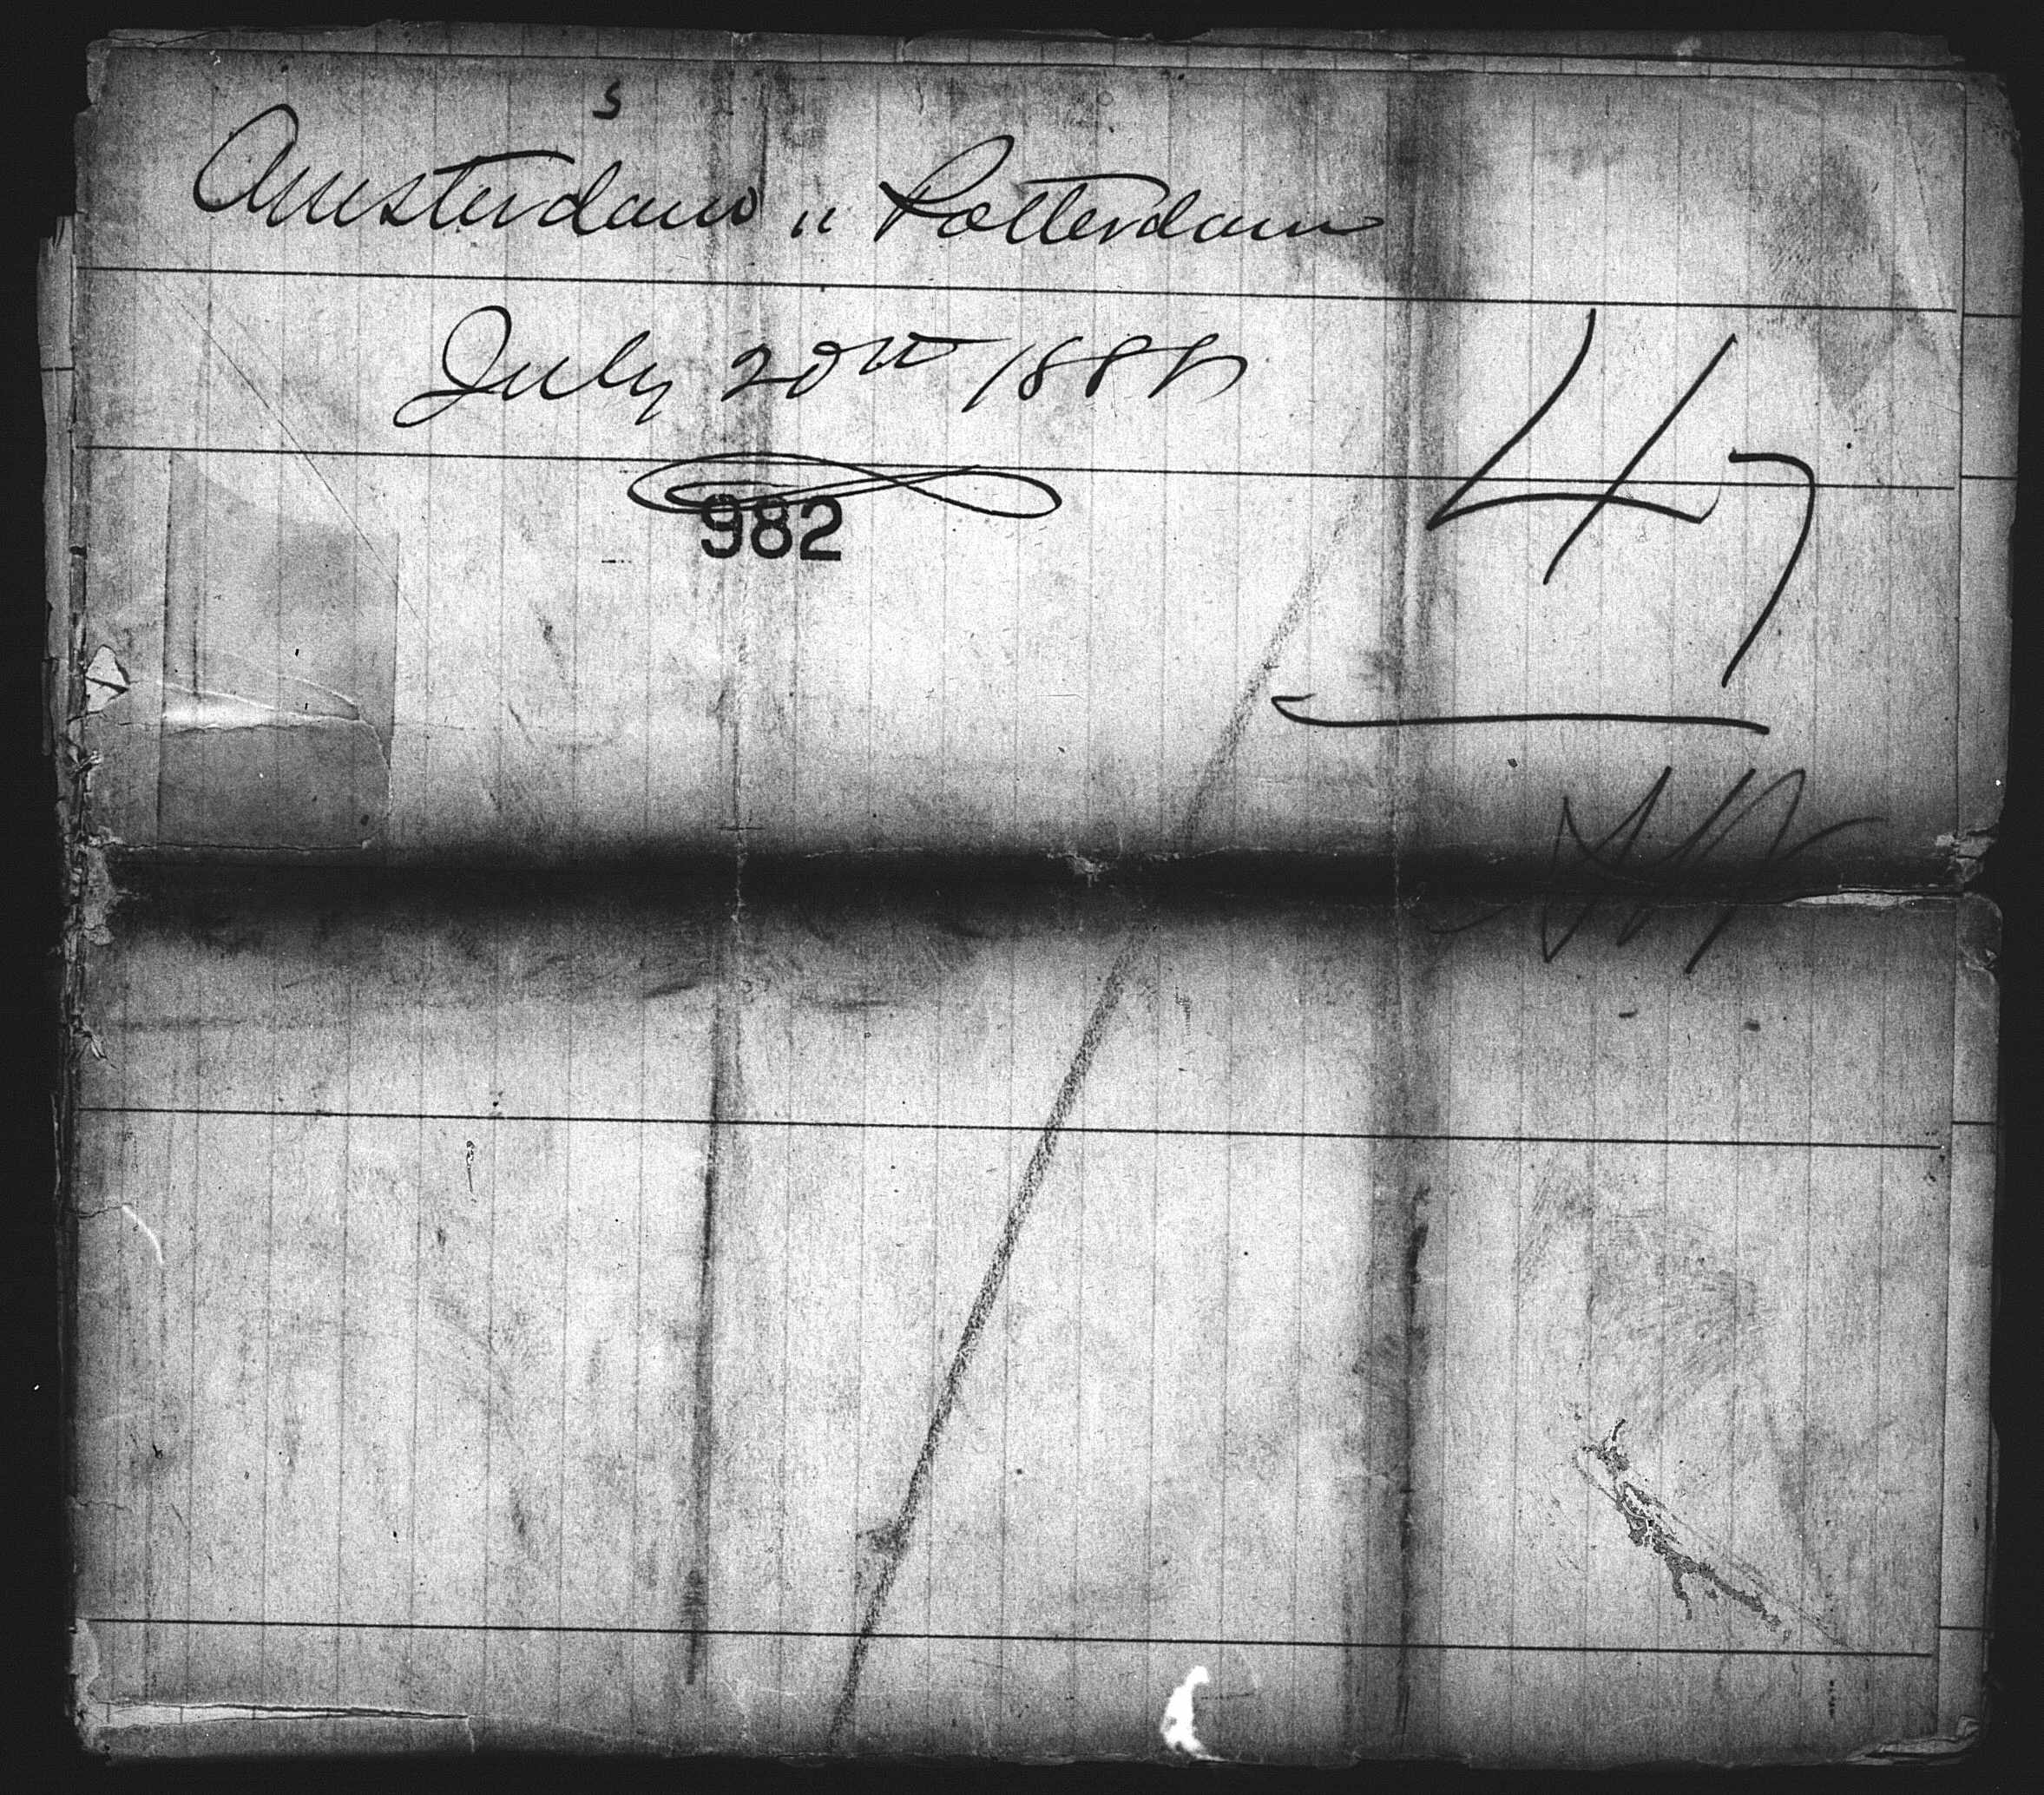 s
Amsterdam " Rotterdam
July 20th 188
982
47